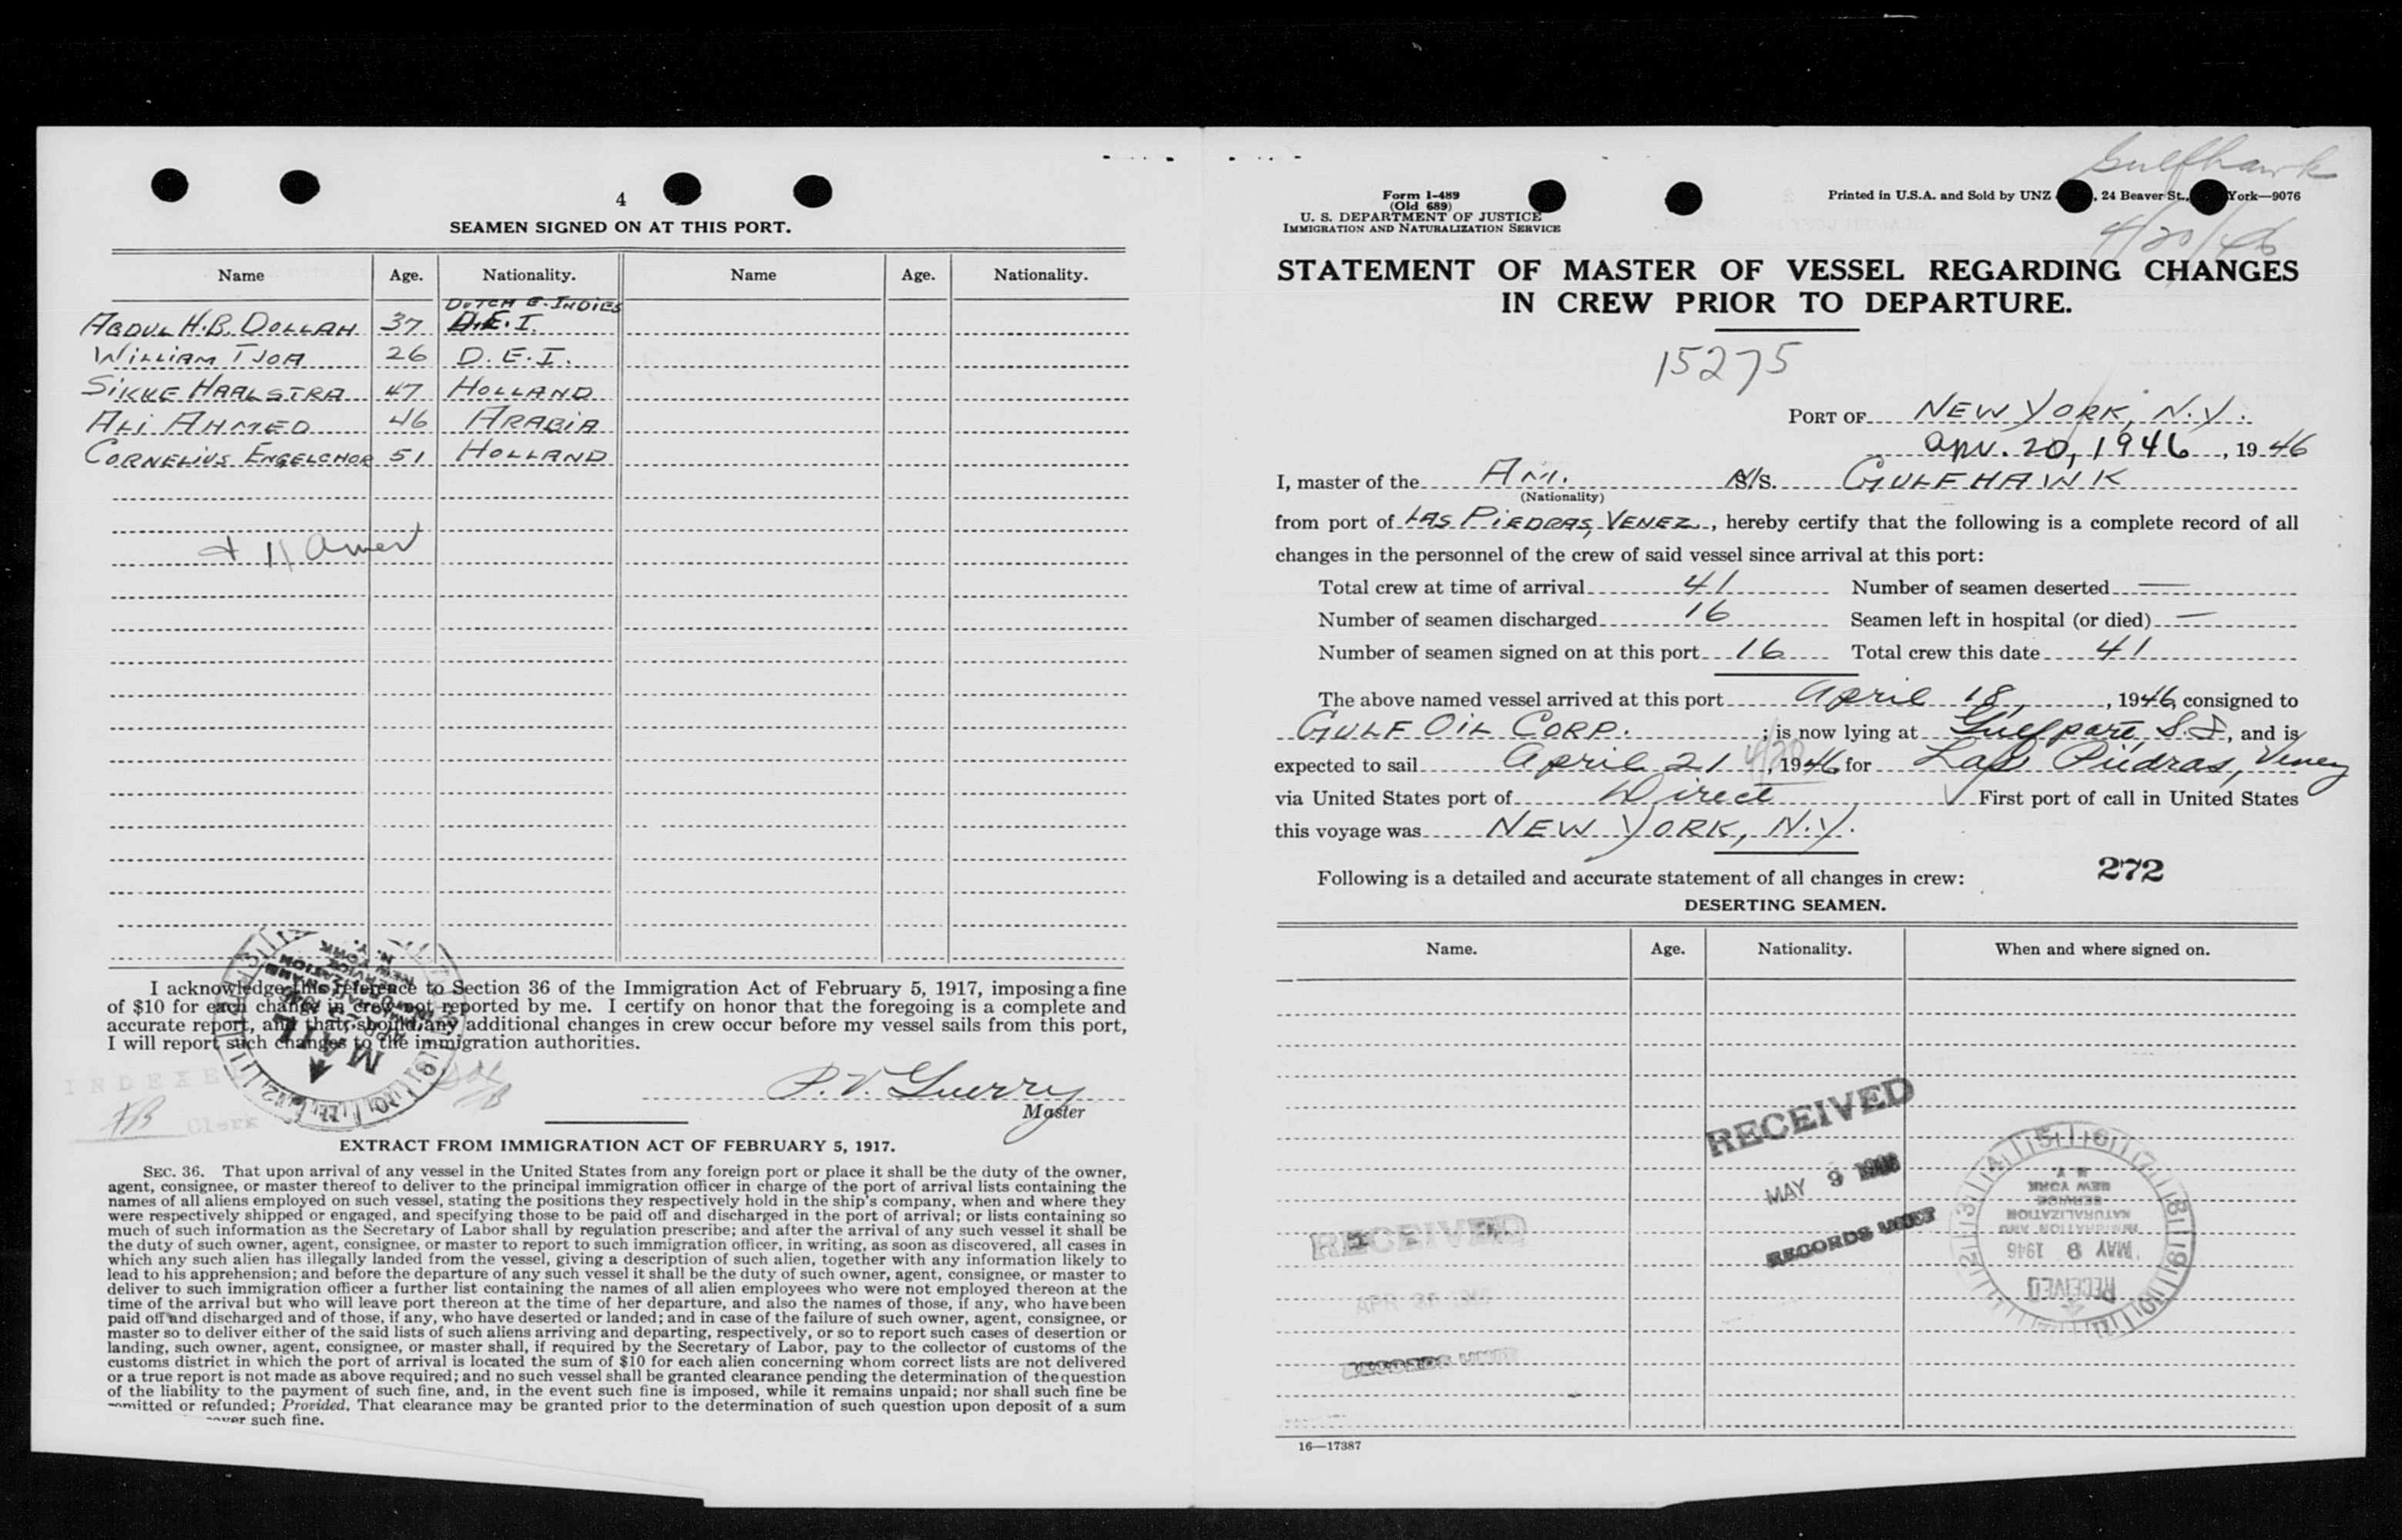 4
SEAMEN SIGNED ON AT THIS PORT.
Name Age. Nationality. Name Age. Nationality.
DUTCH E. INDIES
ABDUL H.B. DOLLAH 37 D.E.I.
WILLIAM TJOA 26 D.E.I.
SIKKE HAALSTRA 47 HOLLAND
ALI AHMED 46 ARABIA
CORNELIUS ENGELCHOR 51 HOLLAND
+ 11 Amer
I acknowledge this reference to Section 36 of the Immigration Act of February 5, 1917, imposing a fine
of $10 for each change in crew not reported by me. I certify on honor that the foregoing is a complete and
accurate report, and that, should any additional changes in crew occur before my vessel sails from this port,
I will report such changes to the immigration authorities.
MAIL
P. V. Guerry
Master
INDEXE
Clerk
EXTRACT FROM IMMIGRATION ACT OF FEBRUARY 5, 1917.
SEC. 36. That upon arrival of any vessel in the United States from any foreign port or place it shall be the duty of the owner,
agent, consignee, or master thereof to deliver to the principal immigration officer in charge of the port of arrival lists containing the
names of all aliens employed on such vessel, stating the positions they respectively hold in the ship's company, when and where they
were respectively shipped or engaged, and specifying those to be paid off and discharged in the port of arrival; or lists containing so
much of such information as the Secretary of Labor shall by regulation prescribe; and after the arrival of any such vessel it shall be
the duty of such owner, agent, consignee, or master to report to such immigration officer, in writing, as soon as discovered, all cases in
which any such alien has illegally landed from the vessel, giving a description of such alien, together with any information likely to
lead to his apprehension; and before the departure of any such vessel it shall be the duty of such owner, agent, consignee, or master to
deliver to such immigration officer a further list containing the names of all alien employees who were not employed thereon at the
time of the arrival but who will leave port thereon at the time of her departure, and also the names of those, if any, who have been
paid off and discharged and of those, if any, who have deserted or landed; and in case of the failure of such owner, agent, consignee, or
master so to deliver either of the said lists of such aliens arriving and departing, respectively, or so to report such cases of desertion or
landing, such owner, agent, consignee, or master shall, if required by the Secretary of Labor, pay to the collector of customs of the
customs district in which the port of arrival is located the sum of $10 for each alien concerning whom correct lists are not delivered
or a true report is not made as above required; and no such vessel shall be granted clearance pending the determination of the question
of the liability to the payment of such fine, and, in the event such fine is imposed, while it remains unpaid; nor shall such fine be
mitted or refunded; Provided, That clearance may be granted prior to the determination of such question upon deposit of a sum
such fine.
Gulfhawk
4/20/46
Form I-489
(Old 689)
U. S. DEPARTMENT OF JUSTICE
IMMIGRATION AND NATURALIZATION SERVICE
Printed in U.S.A. and Sold by UNZ , 24 Beaver St., York—9076
STATEMENT OF MASTER OF VESSEL REGARDING CHANGES
IN CREW PRIOR TO DEPARTURE.
15275
PORT OF NEW YORK, N.Y.
Apr. 20, 1946, 19 46
I, master of the AM. S/S. GULFHAWK
(Nationality)
from port of LAS PIEDRAS, VENEZ., hereby certify that the following is a complete record of all
changes in the personnel of the crew of said vessel since arrival at this port:
Total crew at time of arrival 41 Number of seamen deserted —
Number of seamen discharged 16 Seamen left in hospital (or died) —
Number of seamen signed on at this port 16 Total crew this date 41
The above named vessel arrived at this port April 18, 1946, consigned to
GULF OIL CORP. ; is now lying at Gulfport, S.I., and is
expected to sail April 21 4/20, 1946 for Las Piedras, Venez
via United States port of Direct First port of call in United States
this voyage was NEW YORK, N.Y.
272
Following is a detailed and accurate statement of all changes in crew:
DESERTING SEAMEN.
Name. Age. Nationality. When and where signed on.
RECEIVED
MAY 9 1946
RECORDS UNIT
RECEIVED
RECORDS UNIT
N. Y.
NEW YORK
SERVICE
NATURALIZATION
IMMIGRATION AND
MAY 8 1946
RECEIVED
16—17387